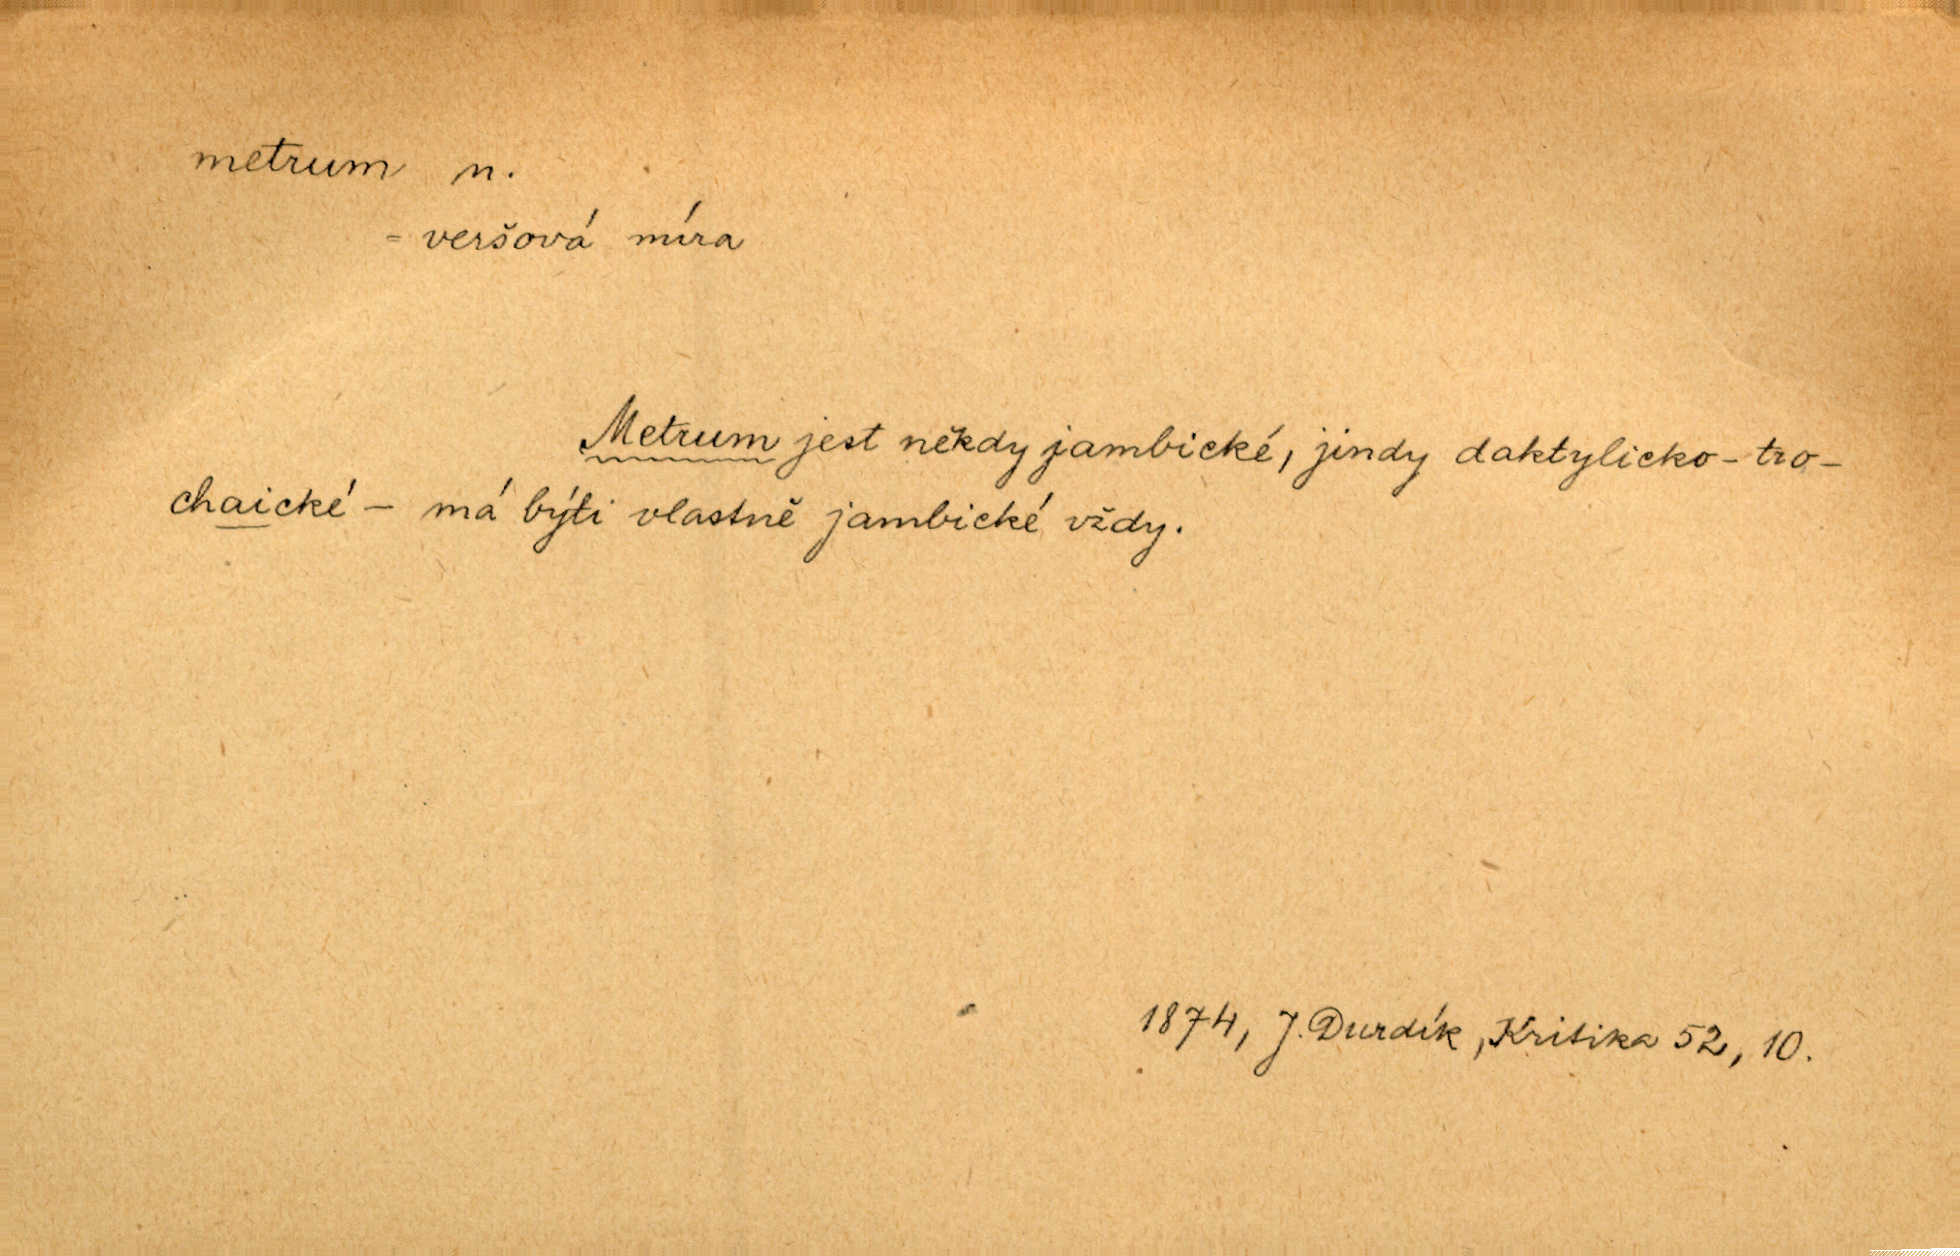 metrum n.
= veršová míra
Metrum jest někdy jambické, jindy daktylicko-tro-
chaické – má býti vlastně jambické vždy.
1874, J. Durdík, Kritika 52, 10.